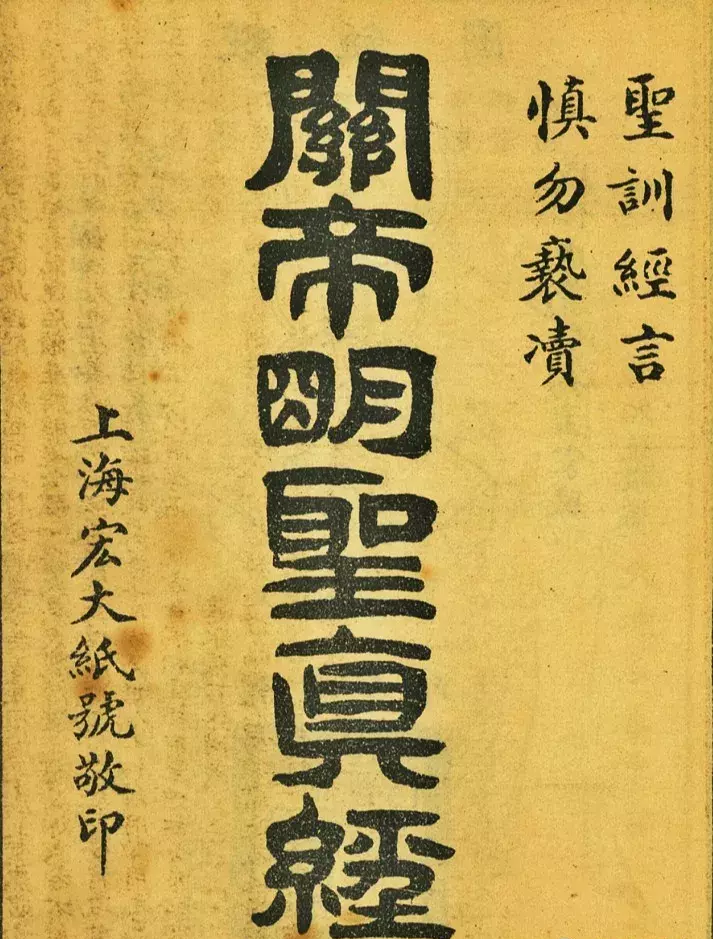 聖訓經言
慎勿褻瀆
關帝明聖真經
上海宏大紙號敬印